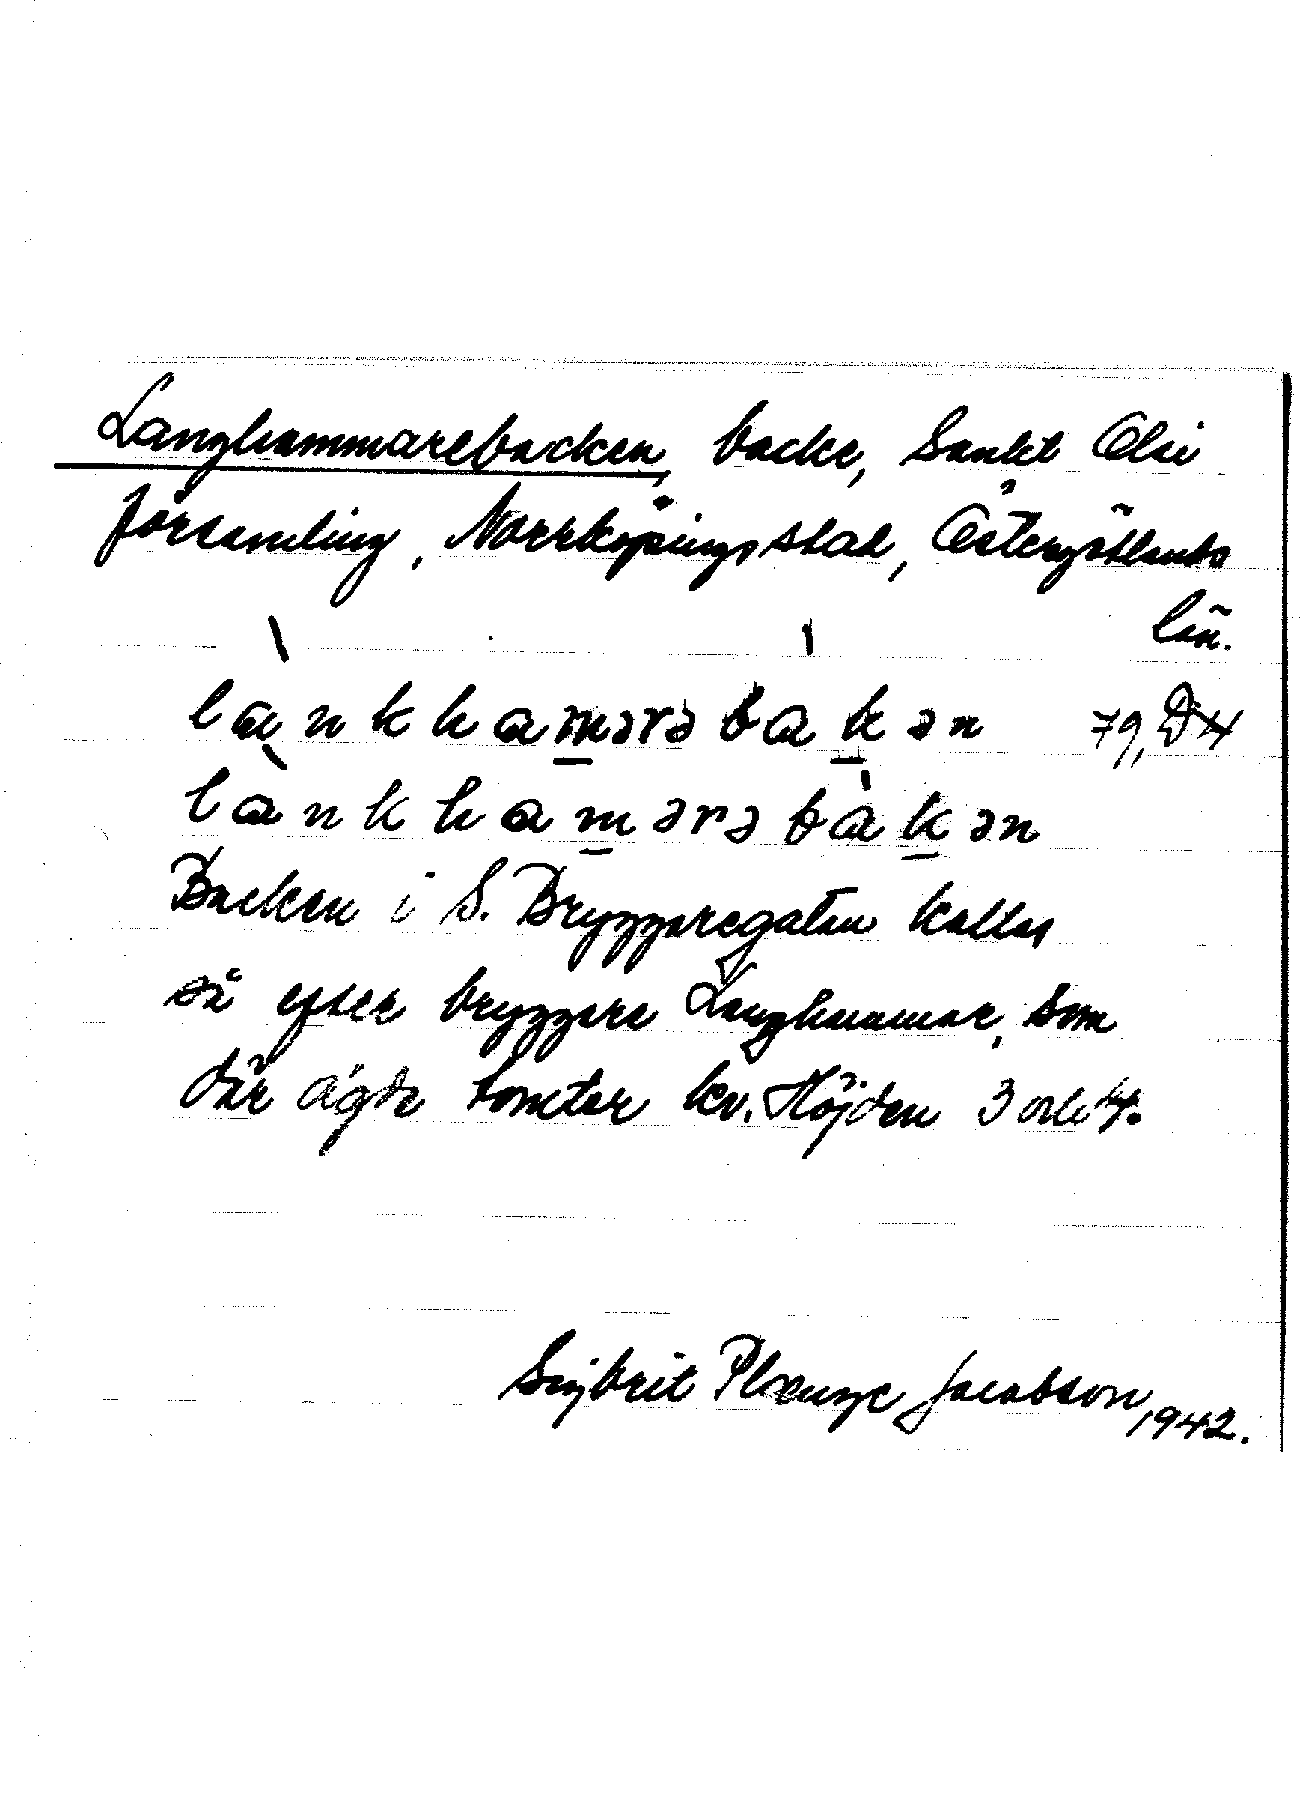 Langhammarebacken, backe, Sankt Olai
församling, Norrköpings stad, Östergötlands
län.
lànkhamərəbakən 79, D 4
lànkhamərəbàkən
Backen i S. Bryggaregatan kallas
så efter bryggare Langhammar, som
där ägde tomter kv. Höjden 3 och 4.
Sigbrit Plænge Jacobson
1942.